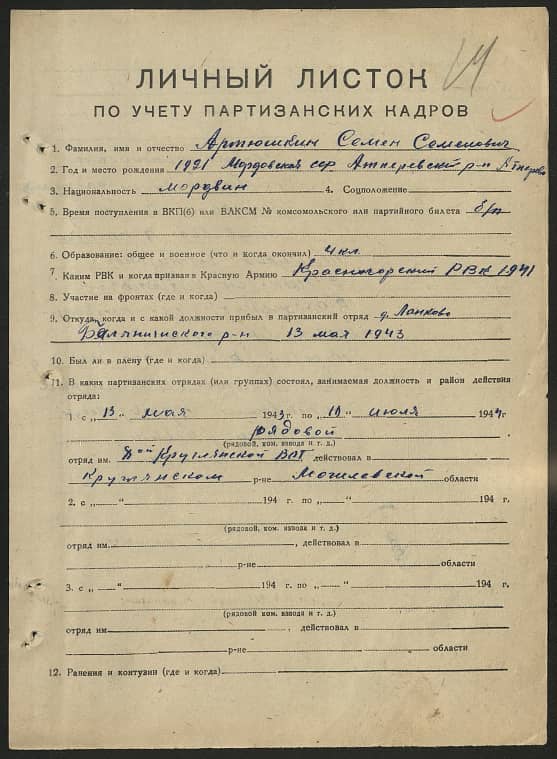 ЛИЧНЫЙ ЛИСТОК
ПО УЧЕТУ ПАРТИЗАНСКИХ КАДРОВ
1. Фамилия, имя и отчество Артюшкин Семен Семенович
2. Год и место рождения 1921 Мордовская сср Атяшевск р-н
3. Национальность мордвин 4. Соцположение
5. Время поступления в ВКП(б) или ВЛКСМ № комсомольского или партийного билета б/п
6. Образование: общее и военное (что и когда окончил) 4 кл.
7. Каким РВК и когда призван в Красную Армию Красногорский РВК 1941
8. Участие на фронтах (где и когда)
9. Откуда, когда и с какой должности прибыл в партизанский отряд д. Ланково
Белыничского р-н 13 мая 1943
10. Был ли в плену (где и когда)
11. В каких партизанских отрядах (или группах) состоял, занимаемая должность и район действия
отряда:
1. с „13" мая 1943 г. по „10" июля 1944 г.
рядовой
(рядовой, ком. взвода и т. д.)
отряд им. Круглянской ВОГ действовал в
Круглянском р-не Могилевской области
2. с „ " 194 г. по „ " 194 г.
(рядовой, ком. взвода и т. д.)
отряд им. , действовал в
р-не области
3. с „ " 194 г. по „ " 194 г.
(рядовой, ком. взвода и т. д.)
отряд им , действовал в
р-не области
12. Ранения и контузии (где и когда)